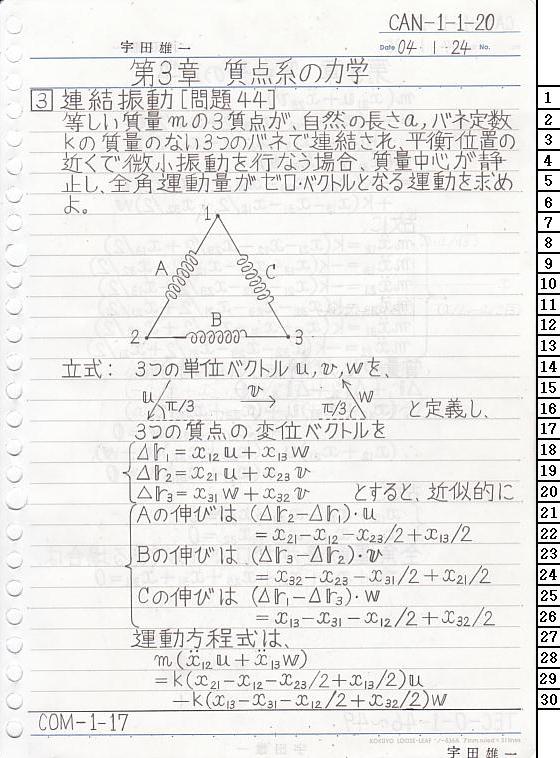 CAN-1-1-20
宇田雄一
Date 04・1・24 No.
第3章 質点系の力学
3 連結振動[問題44]
等しい質量mの3質点が、自然の長さa, バネ定数
kの質量のない3つのバネで連結され、平衡位置の
近くで微小振動を行なう場合、質量中心が静
止し、全角運動量がゼロ・ベクトルとなる運動を求め
よ。
1
A C
B
2 3
立式: 3つの単位ベクトル u, v, w を、
u π/3 v π/3 w と定義し、
3つの質点の変位ベクトルを
Δr₁=x₁₂u+x₁₃w
Δr₂=x₂₁u+x₂₃v
Δr₃=x₃₁w+x₃₂v とすると、近似的に
Aの伸びは (Δr₂-Δr₁)・u
=x₂₁-x₁₂-x₂₃/2+x₁₃/2
Bの伸びは (Δr₃-Δr₂)・v
=x₃₂-x₂₃-x₃₁/2+x₂₁/2
Cの伸びは (Δr₁-Δr₃)・w
=x₁₃-x₃₁-x₁₂/2+x₃₂/2
運動方程式は、
m(ẍ₁₂u+ẍ₁₃w)
=k(x₂₁-x₁₂-x₂₃/2+x₁₃/2)u
-k(x₁₃-x₃₁-x₁₂/2+x₃₂/2)w
COM-1-17
KOKUYO LOOSE-LEAF
宇田雄一
1
2
3
4
5
6
7
8
9
10
11
12
13
14
15
16
17
18
19
20
21
22
23
24
25
26
27
28
29
30